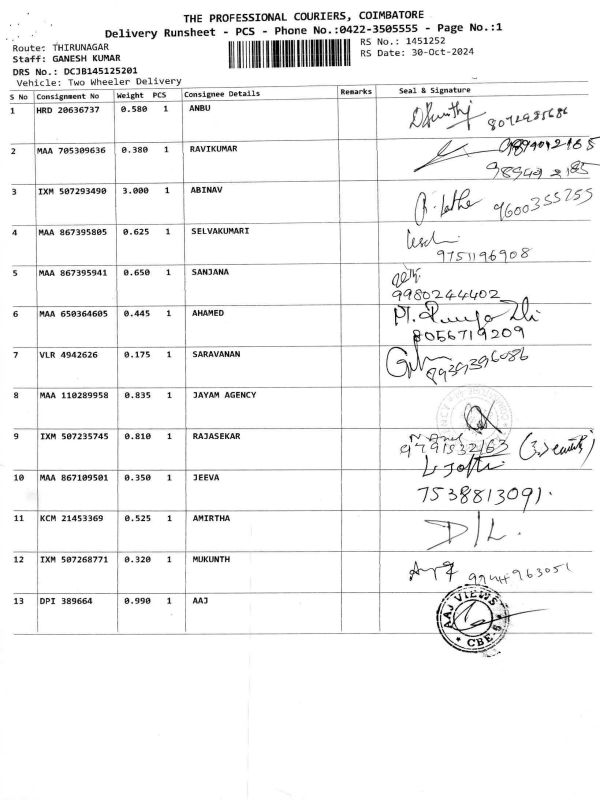 THE PROFESSIONAL COURIERS, COIMBATORE
Delivery Runsheet - PCS - Phone No.:0422-3505555 - Page No.:1
Route: THIRUNAGAR
RS No.: 1451252
Staff: GANESH KUMAR
RS Date: 30-Oct-2024
DRS No.: DCJB145125201
Vehicle: Two Wheeler Delivery
S No Consignment No Weight PCS Consignee Details Remarks Seal & Signature
1 HRD 20636737 0.580 1 ANBU
2 MAA 705309636 0.380 1 RAVIKUMAR
3 IXM 507293490 3.000 1 ABINAV 9600355255
4 MAA 867395805 0.625 1 SELVAKUMARI
9751196908
5 MAA 867395941 0.650 1 SANJANA
9980244402
6 MAA 650364605 0.445 1 AHAMED
8056719209
7 VLR 4942626 0.175 1 SARAVANAN
8 MAA 110289958 0.835 1 JAYAM AGENCY
9 IXM 507235745 0.810 1 RAJASEKAR
9791532163
10 MAA 867109501 0.350 1 JEEVA
7538813091.
11 KCM 21453369 0.525 1 AMIRTHA D/L.
12 IXM 507268771 0.320 1 MUKUNTH 9944963051
13 DPI 389664 0.990 1 AAJ
AAJ VIEWS
CBE-6